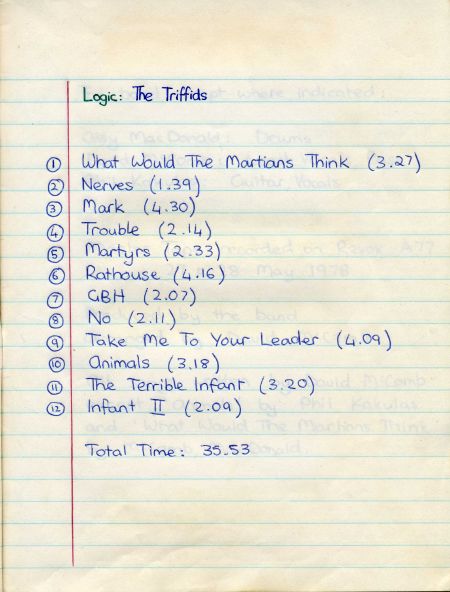 Logic: The Triffids
① What Would The Martians Think (3.27)
② Nerves (1.39)
③ Mark (4.30)
④ Trouble (2.14)
⑤ Martyrs (2.33)
⑥ Rathouse (4.16)
⑦ GBH (2.07)
⑧ No (2.11)
⑨ Take Me To Your Leader (4.09)
⑩ Animals (3.18)
⑪ The Terrible Infant (3.20)
⑫ Infant II (2.09)
Total Time: 35.53